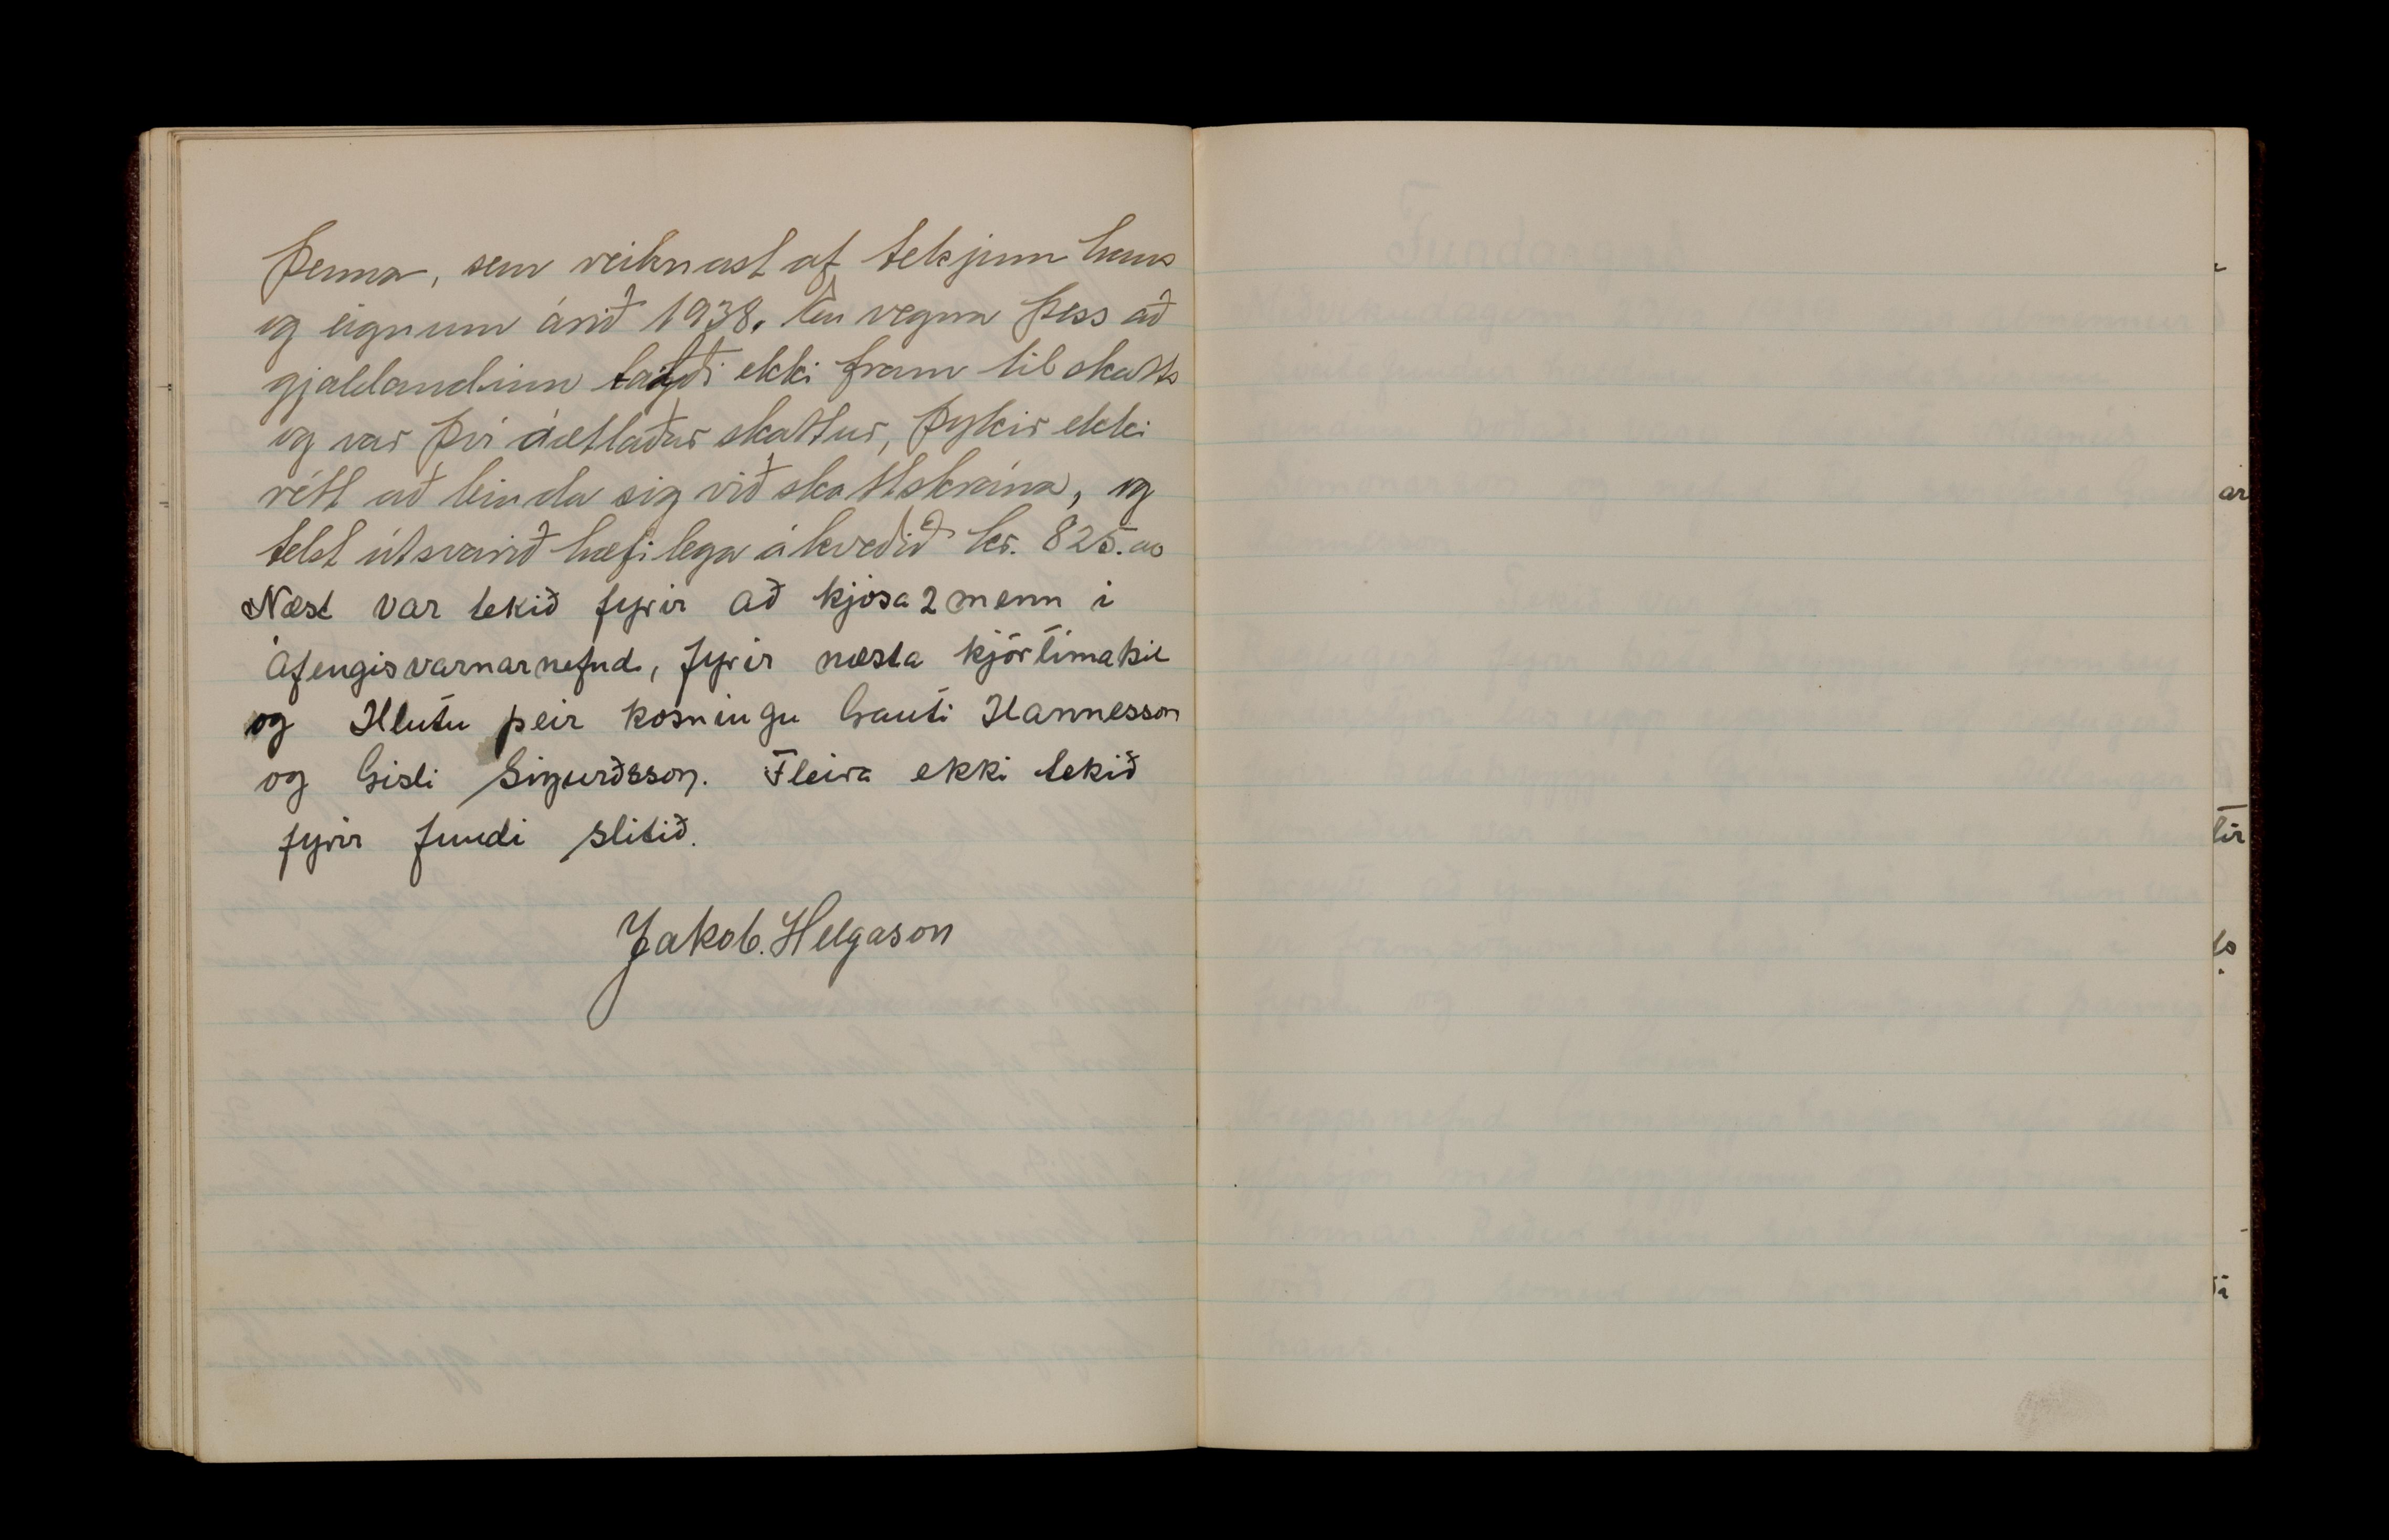 þenna, sem reiknast af tekjum hans
og eignum árið 1938. En vegna þess að
gjaldandinn taldi ekki fram til skatts
og var því áætlaður skattur, þykir ekki
rétt að binda sig við skattskrána, og
telst útsvarið hæfilega ákveðið kr. 825.00
Næst var tekið fyrir að kjósa 2 menn i
Áfengisvarnarnefnd, fyrir næsta kjörtímabil
og Hlutu þeir kosningu Gauti Hannesson
og Gisli Sigurðsson. Fleira ekki tekið
fyrir fundi slitið.
Jakob. Helgason